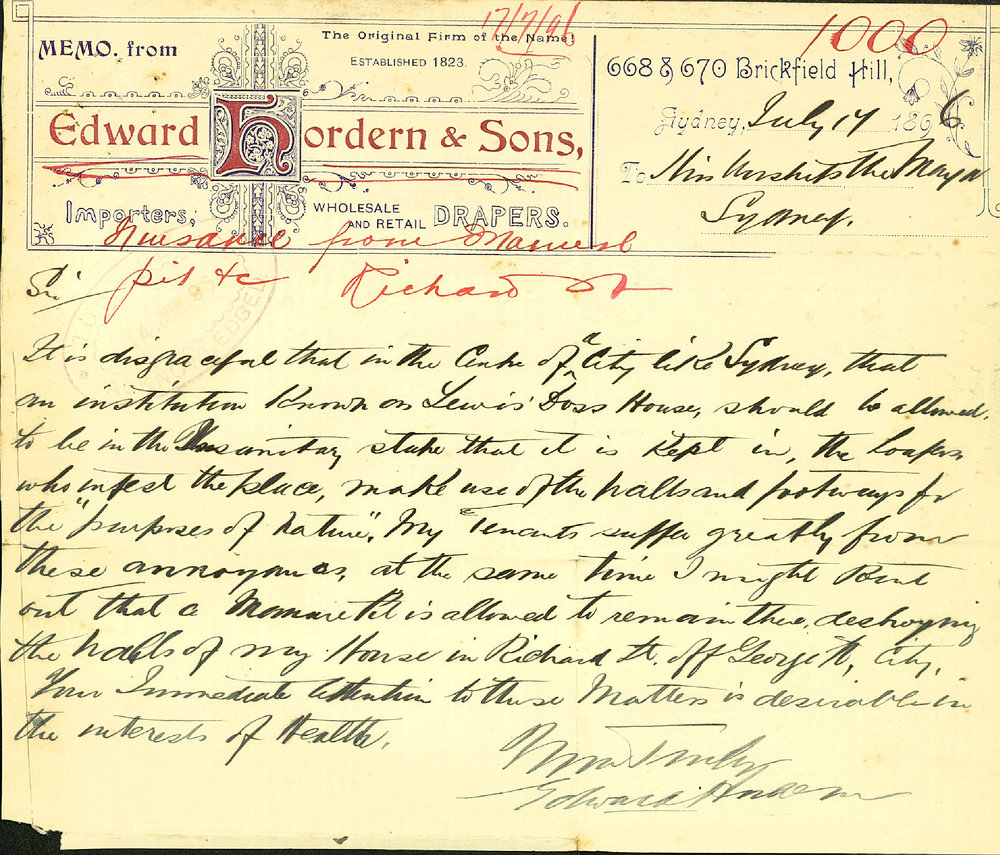 17/7/96
1000
MEMO. from
The Original Firm of the Name!
ESTABLISHED 1823.
Edward Hordern & Sons,
Importers, WHOLESALE AND RETAIL DRAPERS.
668 & 670 Brickfield Hill,
Sydney, July 14 1896
To His Worship the Mayor
Sydney.
Nuisance from Manure
pit &c Richard St
Sir
It is disgraceful that in the Centre of a City like Sydney, that
an institution Known as Lewis' Doss House, should be allowed
to be in the Insanitary state that it is Kept in, the Loafers
who infest the place, make use of the walls and footways for
the "purposes of nature". My Tenants suffer greatly from
these annoyances, at the same time I might Point
out that a Manure Pit is allowed to remain there, destroying
the walls of my House in Richard St. off George St, City,
Your Immediate Attention to these Matters is desirable in
the interests of Health.
Yours Truly
Edward Hordern